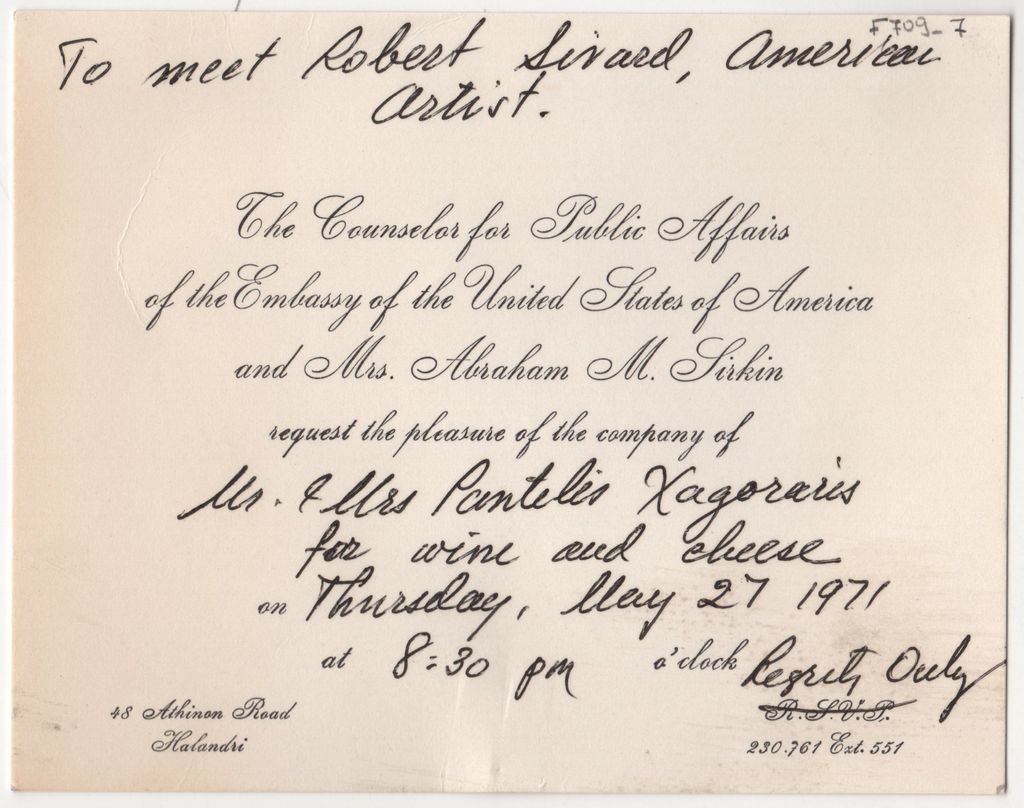 F709-7
To meet Robert Sivard, American
Artist.
The Counselor for Public Affairs
of the Embassy of the United States of America
and Mrs. Abraham M. Sirkin
request the pleasure of the company of
Mr. & Mrs Pantelis Xagoraris
for wine and cheese
on Thursday, May 27 1971
at 8:30 pm o'clock Regrets Only
48 Athinon Road R.S.V.P.
Halandri 230.761 Ext. 551